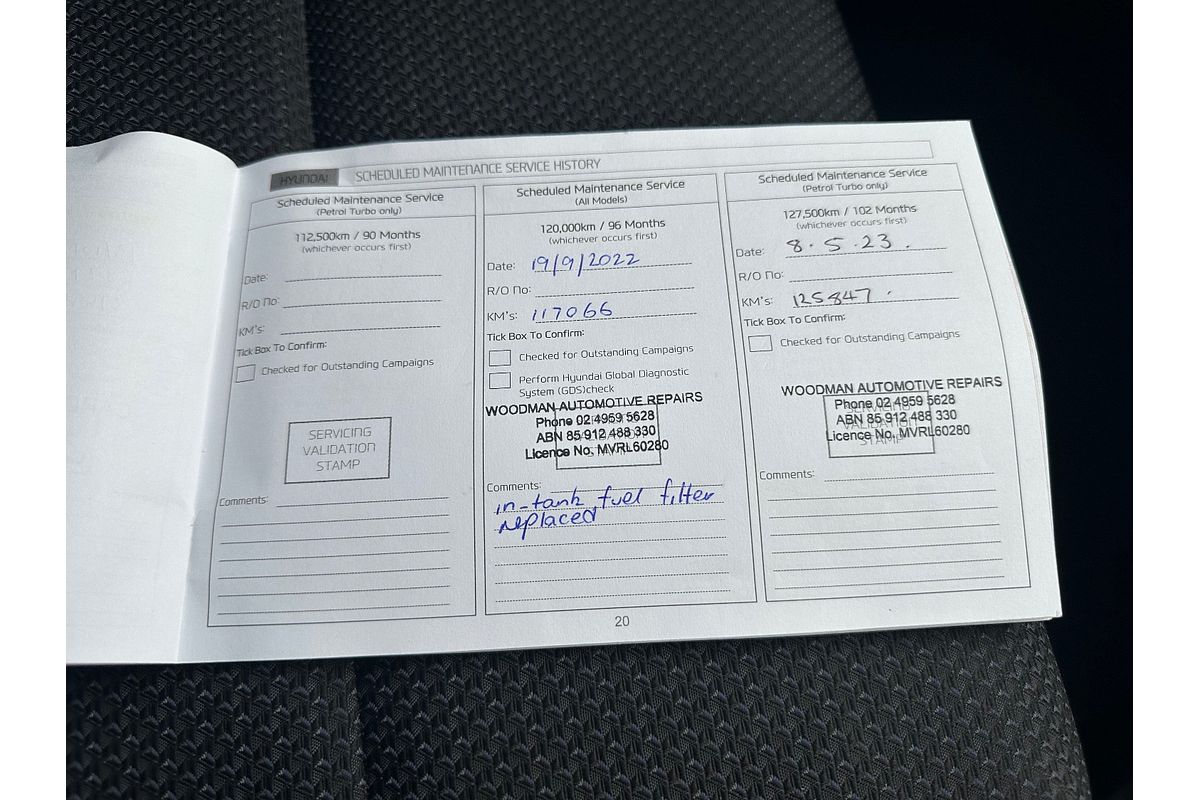 HYUNDAI SCHEDULED MAINTENANCE SERVICE HISTORY
Scheduled Maintenance Service
(Petrol Turbo only)
112,500km / 90 Months
(whichever occurs first)
Date:
R/O No:
KM's:
Tick Box To Confirm:
Checked for Outstanding Campaigns
SERVICING
VALIDATION
STAMP
Comments:
Scheduled Maintenance Service
(All Models)
120,000km / 96 Months
(whichever occurs first)
Date: 19/9/2022
R/O No:
KM's: 117066
Tick Box To Confirm:
Checked for Outstanding Campaigns
Perform Hyundai Global Diagnostic
System (GDS)check
WOODMAN AUTOMOTIVE REPAIRS
Phone 02 4959 5628
ABN 85 912 488 330
Licence No. MVRL60280
Comments:
in-tank fuel filter
replaced
Scheduled Maintenance Service
(Petrol Turbo only)
127,500km / 102 Months
(whichever occurs first)
Date: 8.5.23.
R/O No:
KM's: 125847.
Tick Box To Confirm:
Checked for Outstanding Campaigns
WOODMAN AUTOMOTIVE REPAIRS
Phone 02 4959 5628
SERVICING
ABN 85 912 488 330
VALIDATION
Licence No. MVRL60280
STAMP
Comments:
20